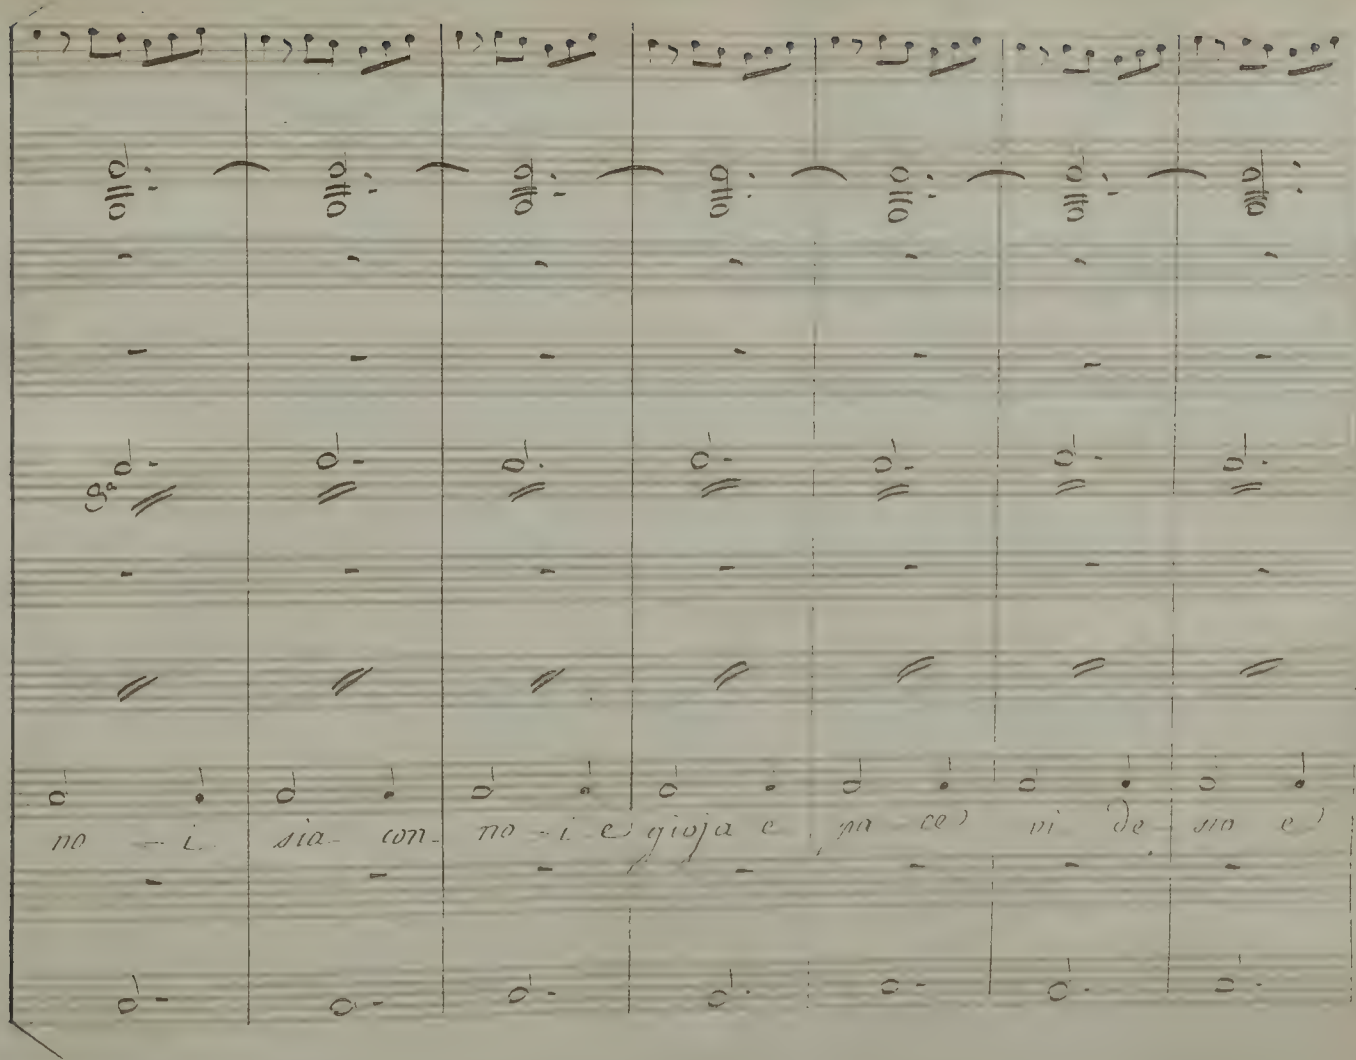 8ª
no - i sia con- no - i e gioja e pa - ce vi de - sio e